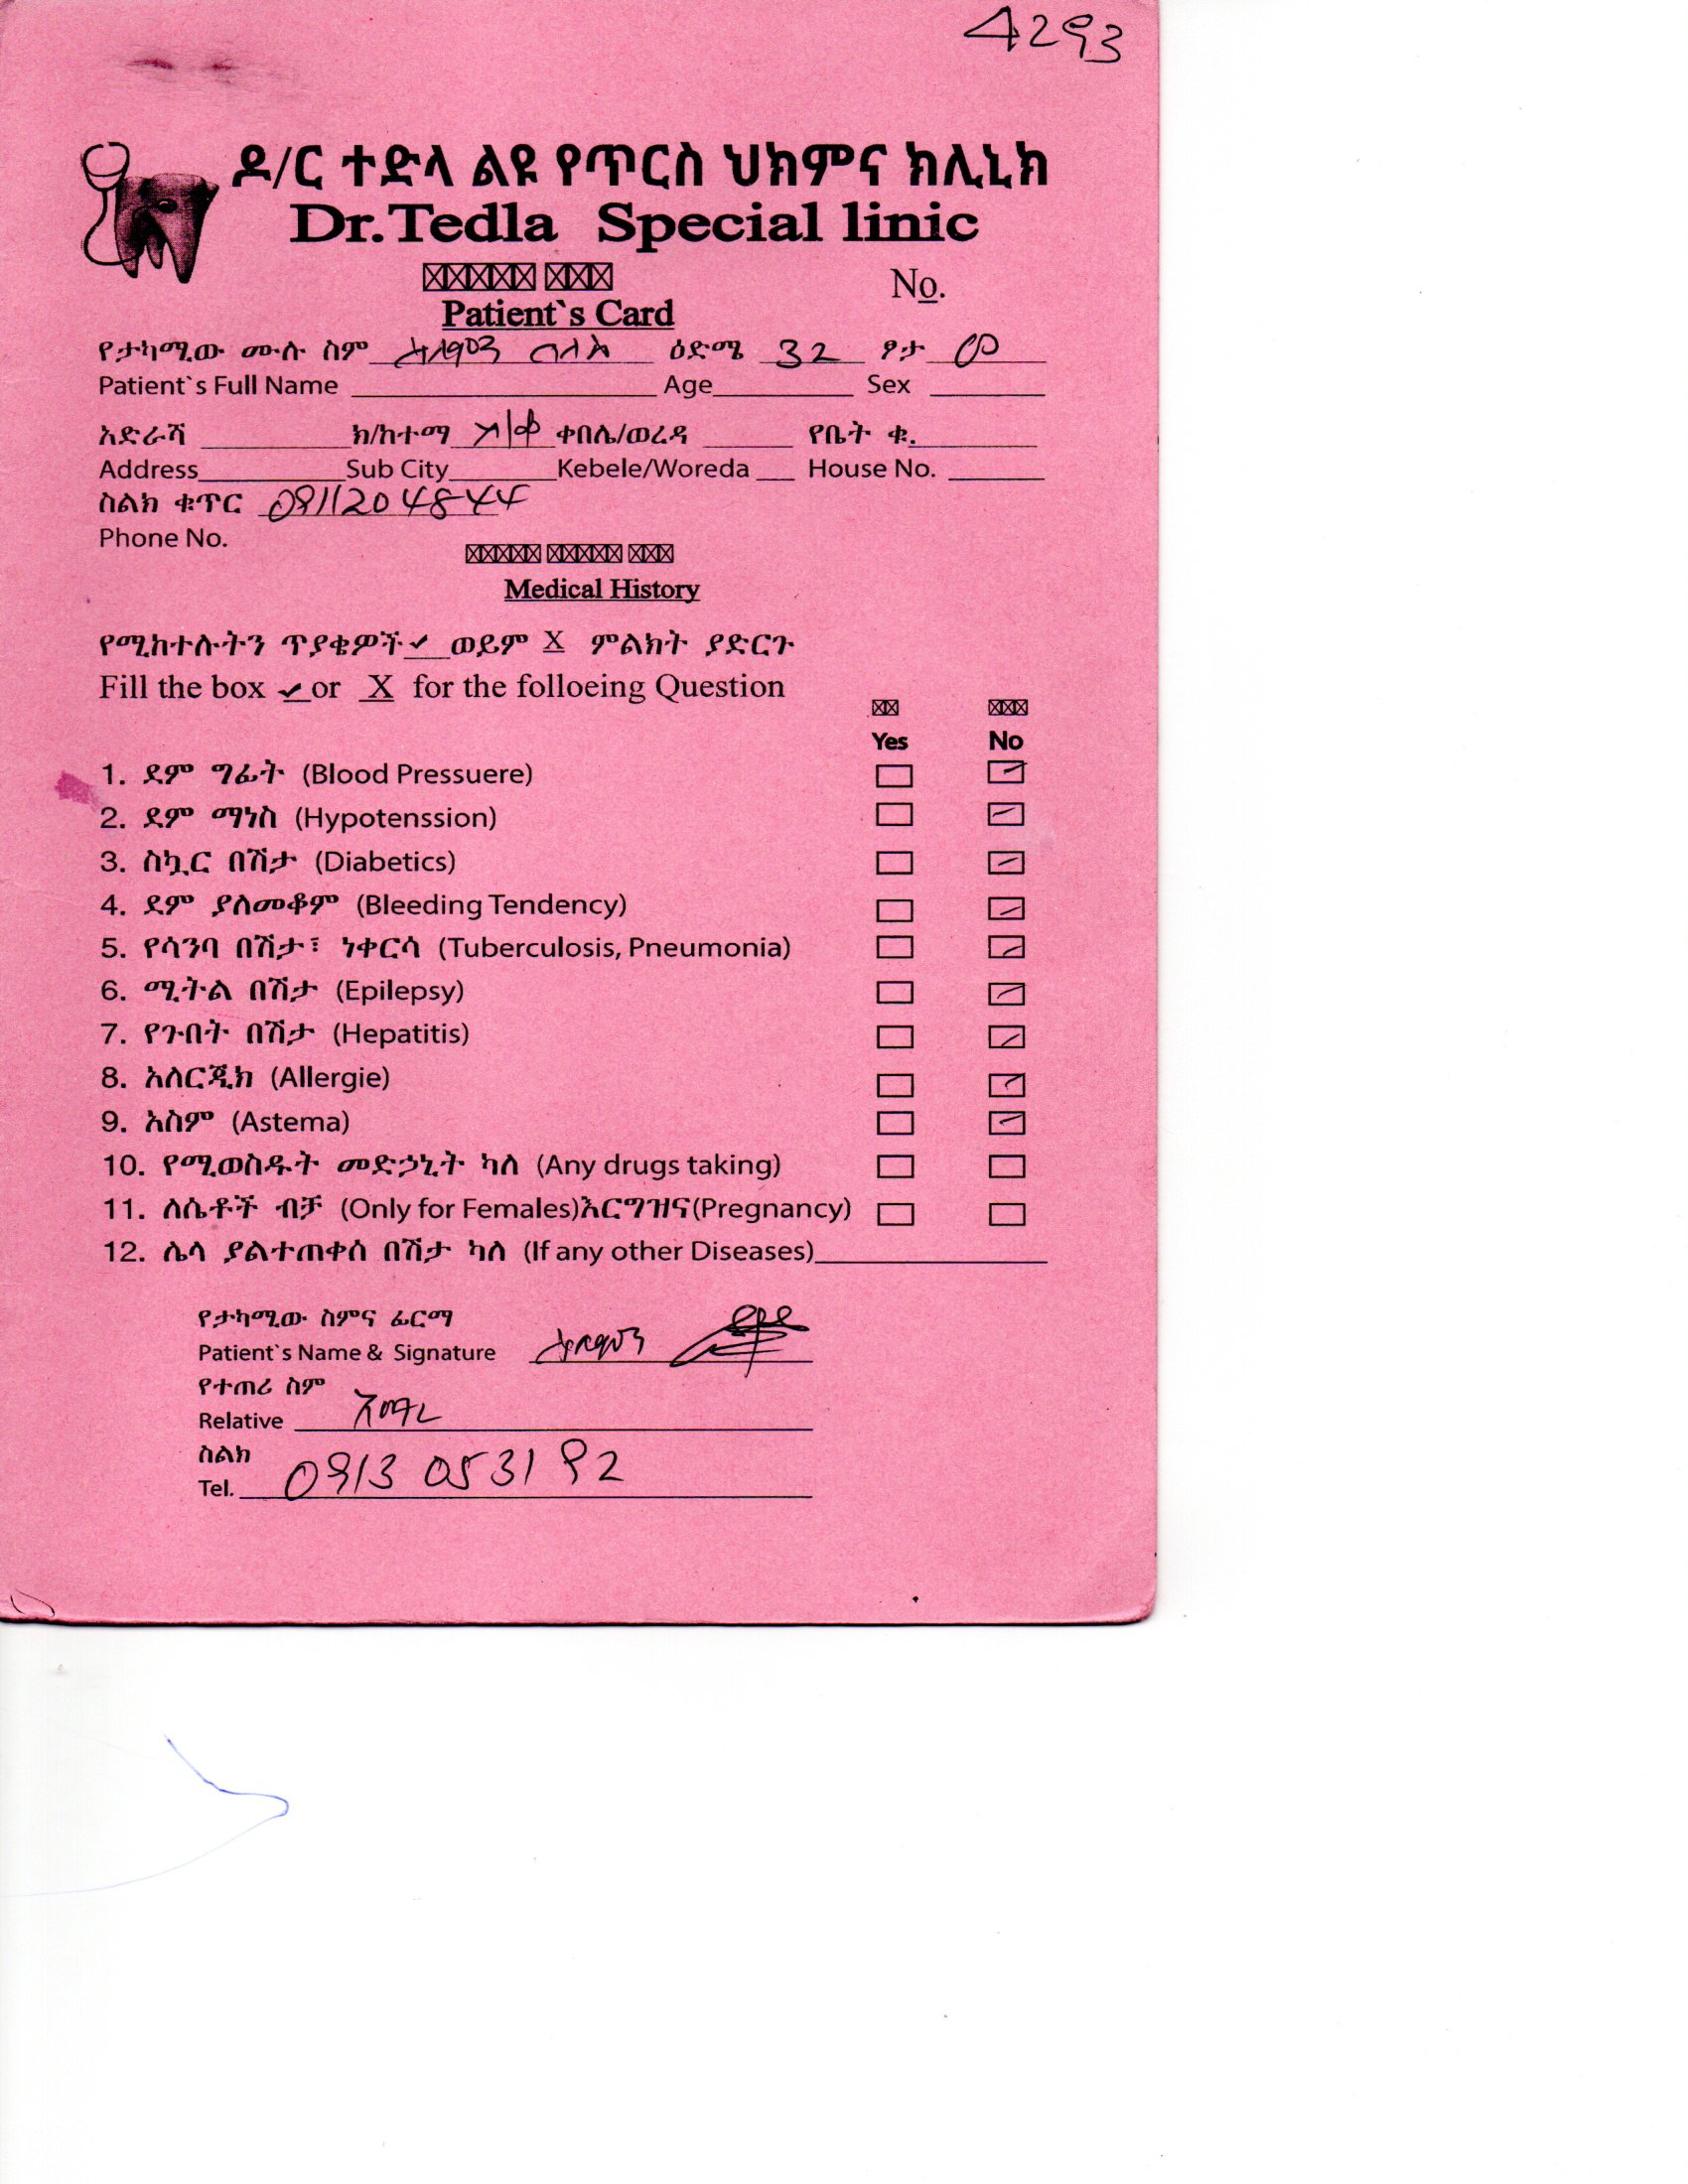 4293
ዶ/ር ተድላ ልዩ የጥርስ ህክምና ክሊኒክ
Dr.Tedla Special linic
No.
Patient`s Card
የታካሚው ሙሉ ስም ዕድሜ 32 ፆታ
Patient`s Full Name Age Sex
አድራሻ ክ/ከተማ ቀበሌ/ወረዳ የቤት ቁ.
Address Sub City Kebele/Woreda House No.
ስልክ ቁጥር 0911204844
Phone No.
Medical History
የሚከተሉትን ጥያቄዎች ✓ ወይም X ምልክት ያድርጉ
Fill the box ✓ or X for the folloeing Question
Yes No
1. ደም ግፊት (Blood Pressuere)
2. ደም ማነስ (Hypotenssion)
3. ስኳር በሽታ (Diabetics)
4. ደም ያለመቆም (Bleeding Tendency)
5. የሳንባ በሽታ፣ ነቀርሳ (Tuberculosis, Pneumonia)
6. ሚትል በሽታ (Epilepsy)
7. የጉበት በሽታ (Hepatitis)
8. አለርጂክ (Allergie)
9. አስም (Astema)
10. የሚወስዱት መድኃኒት ካለ (Any drugs taking)
11. ለሴቶች ብቻ (Only for Females)እርግዝና(Pregnancy)
12. ሌላ ያልተጠቀሰ በሽታ ካለ (If any other Diseases)
የታካሚው ስምና ፊርማ
Patient`s Name & Signature
የተጠሪ ስም
Relative
ስልክ
Tel. 0913 053192